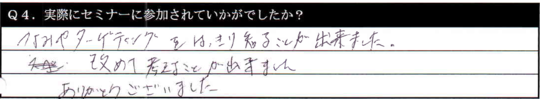 Q4. 実際にセミナーに参加されていかがでしたか？
ターゲティングをはっきり知ることが出来ました。
改めて考えることが出来ました
ありがとうございました